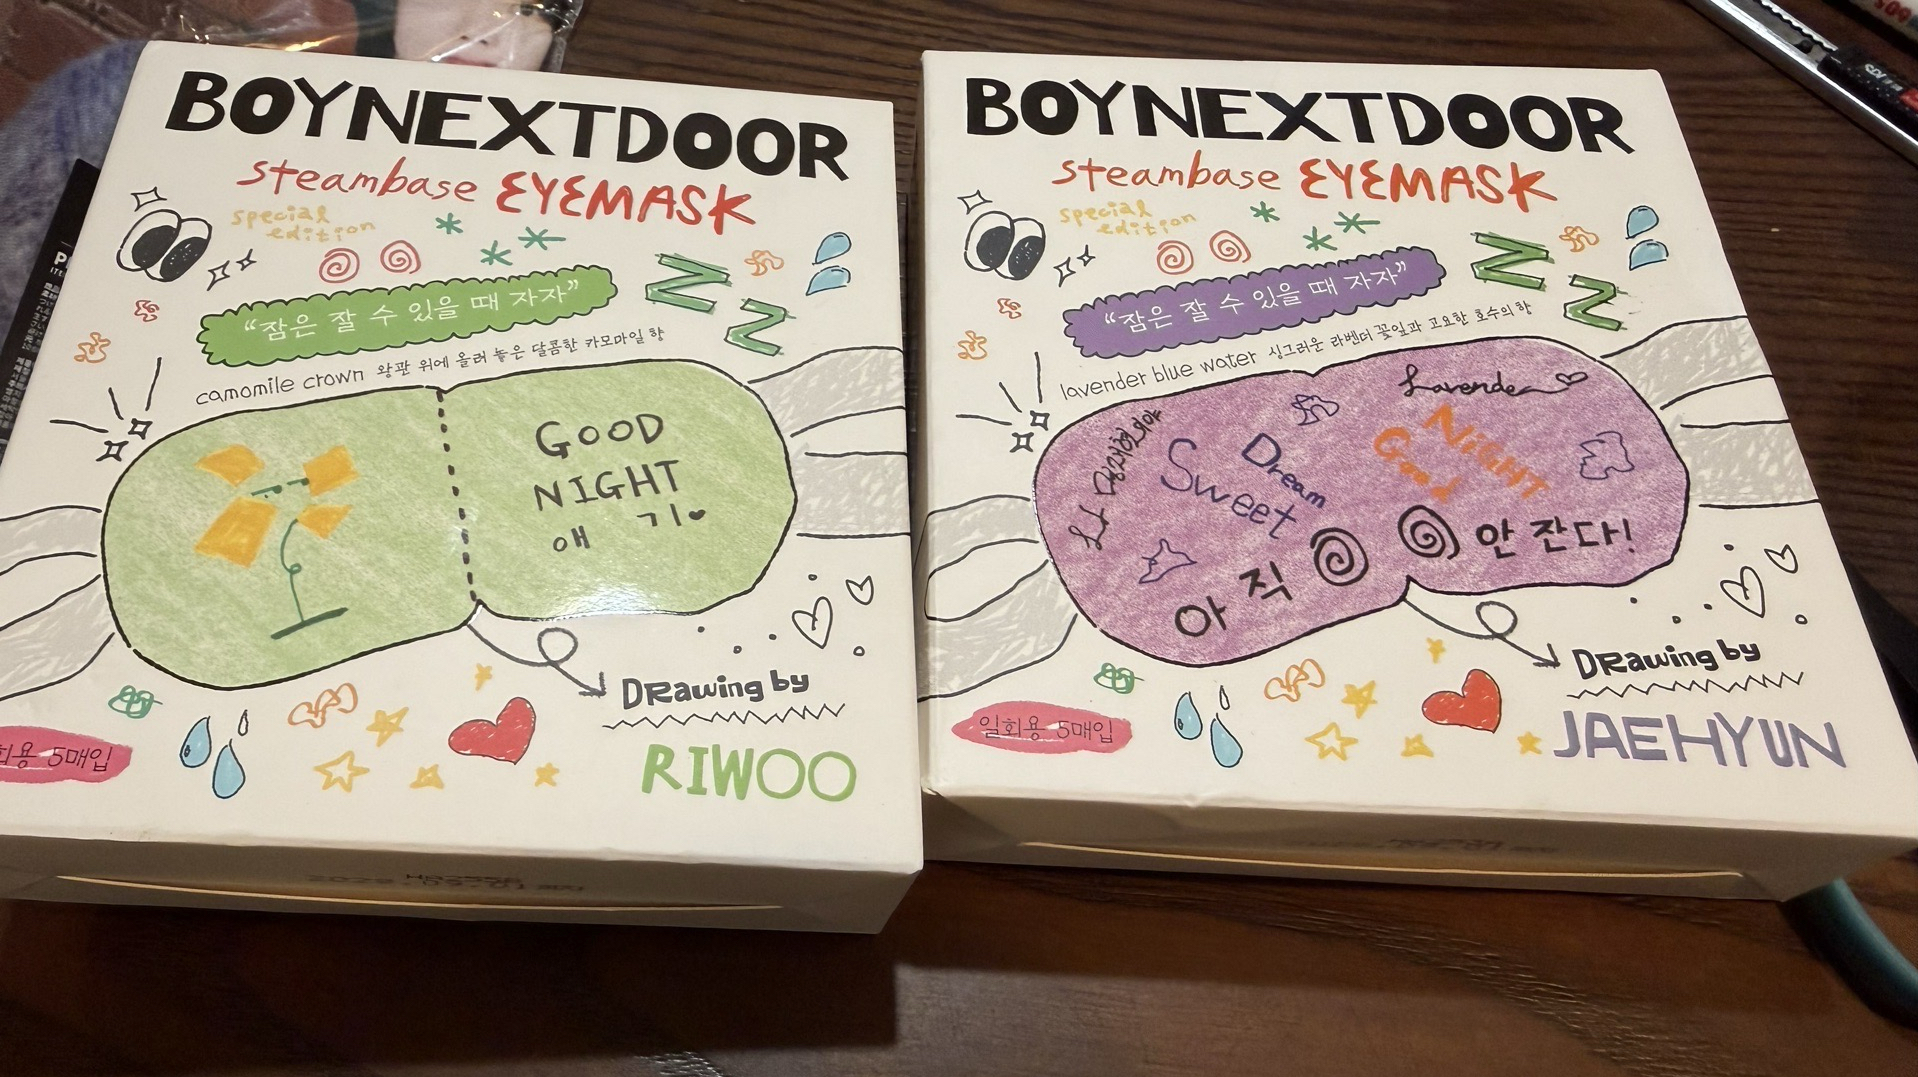 BOYNEXTDOOR
steambase EYEMASK
special
edition
“잠은 잘 수 있을 때 자자”
camomile crown 왕관 위에 올려 놓은 달콤한 카모마일 향
GOOD
NIGHT
애 기
Drawing by
RIWOO
회용 5매입
BOYNEXTDOOR
steambase EYEMASK
special
edition
“잠은 잘 수 있을 때 자자”
lavender blue water 싱그러운 라벤더 꽃잎과 고요한 호수의 향
Lavender
Sweet
Dream
Good
NiGHT
아직 안 잔다!
Drawing by
JAEHYUN
일회용 5매입